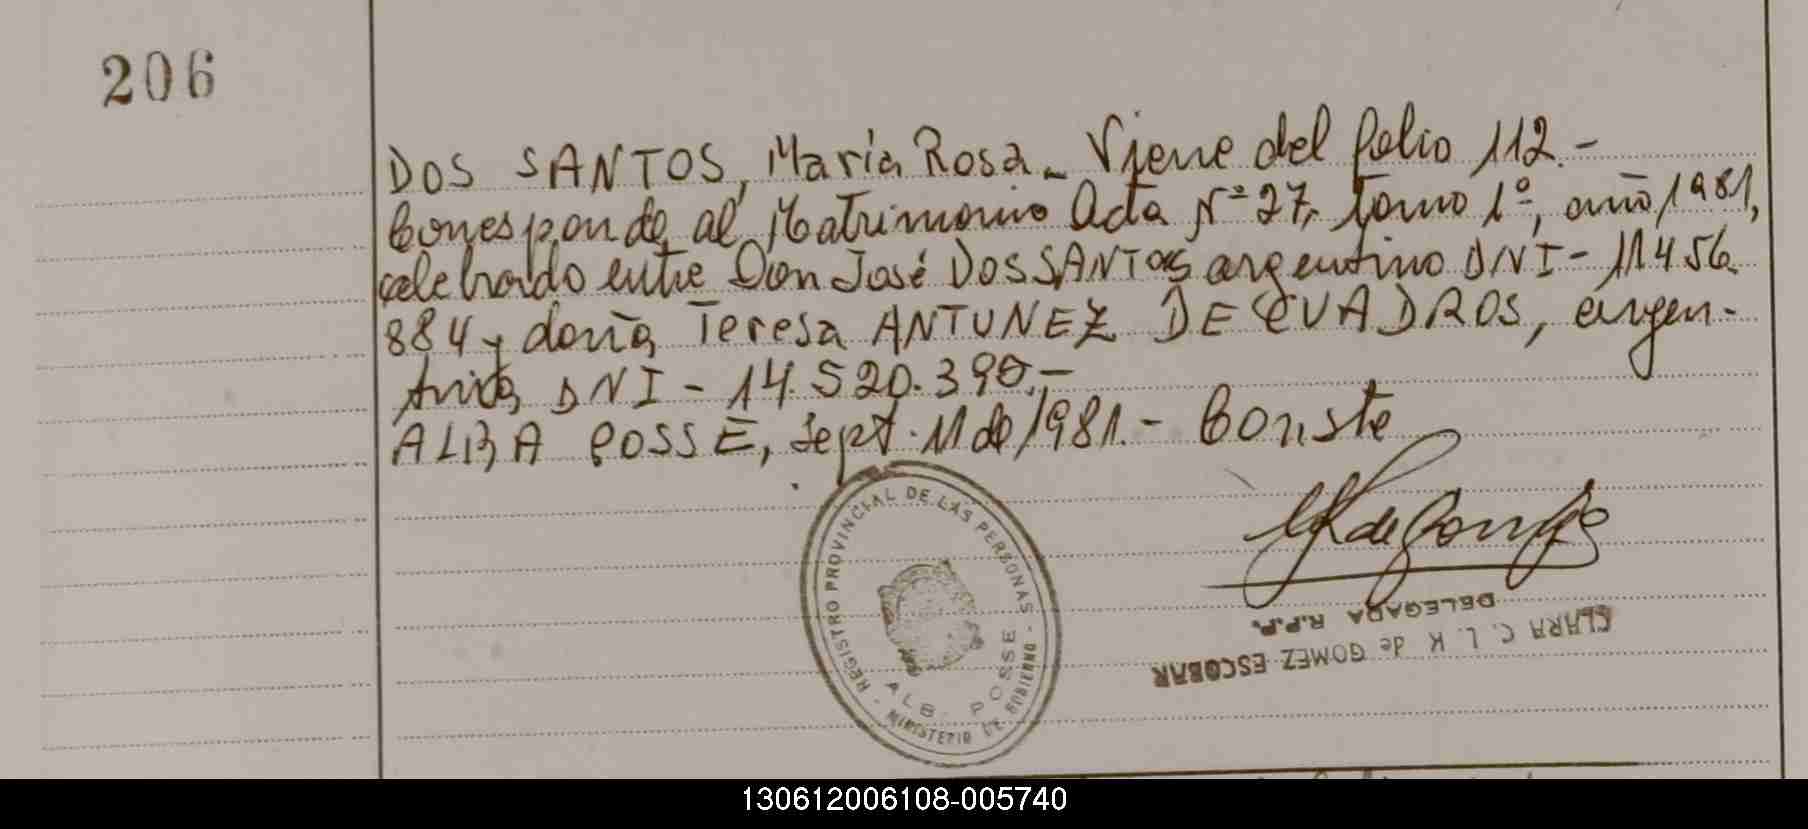 206
DOS SANTOS, María Rosa_ Viene del folio 112.-
Corresponde al Matrimonio Acta Nº 27, tomo 1º, año 1981,
celebrado entre Don José DOS SANTOS argentino DNI - 11456.
884 y doña Teresa ANTUNEZ DE CUADROS, argen-
tina, DNI - 14.520.390.-
ALBA POSSE, sept. 11 de 1981.- Conste
REGISTRO PROVINCIAL DE LAS PERSONAS - MINISTERIO DE GOBIERNO -
ALB. POSSE
CLARA C. L. K de GOMEZ ESCOBAR
DELEGADA R.P.P.
130612006108-005740